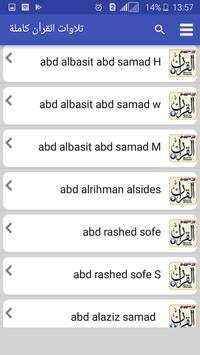 14% 13:57
تلاوات القرأن كاملة
abd albasit abd samad H
abd albasit abd samad w
abd albasit abd samad M
abd alrihman alsides
abd rashed sofe
abd rashed sofe S
abd alaziz samad